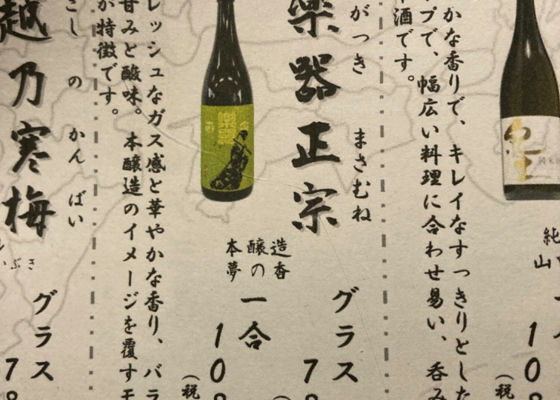 純
山
10
(税
かな香りで、キレイなすっきりとした
プで、幅広い料理に合わせ易い、呑み
酒です。
がっき まさむね
楽器正宗
本醸造
夢の香
グラス 7
一合 10
(税
レッシュなガス感と華やかな香り、バラ
甘みと酸味。本醸造のイメージを覆すモ
が特徴です。
こし の かん ばい
越乃寒梅
いぶき
グラス 78